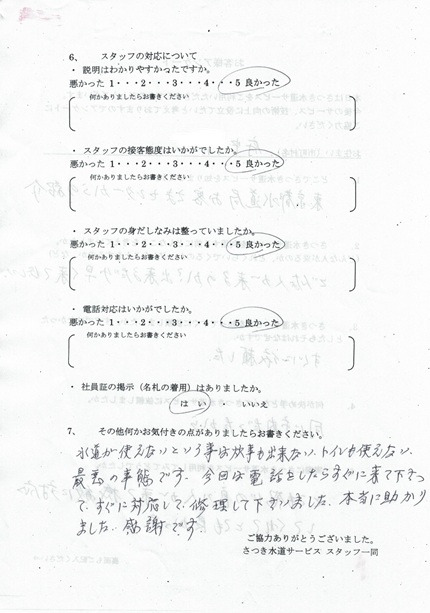 6、 スタッフの対応について
・ 説明はわかりやすかったですか。
悪かった 1・・・2・・・3・・・4・・・5 良かった
何かありましたらお書きください
・ スタッフの接客態度はいかがでしたか。
悪かった 1・・・2・・・3・・・4・・・5 良かった
何かありましたらお書きください
・ スタッフの身だしなみは整っていましたか。
悪かった 1・・・2・・・3・・・4・・・5 良かった
何かありましたらお書きください
・ 電話対応はいかがでしたか。
悪かった 1・・・2・・・3・・・4・・・5 良かった
何かありましたらお書きください
・ 社員証の掲示（名札の着用）はありましたか。
は い ・ いいえ
7、 その他何かお気付きの点がありましたらお書きください。
水道が使えないという事は炊事も出来ない、トイレも使えない、
最悪の事態です。今回は電話をしたらすぐに来て下さっ
て、すぐに対応して、修理して下さいました。本当に助かり
ました。感謝です。
ご協力ありがとうございました。
さつき水道サービス スタッフ一同